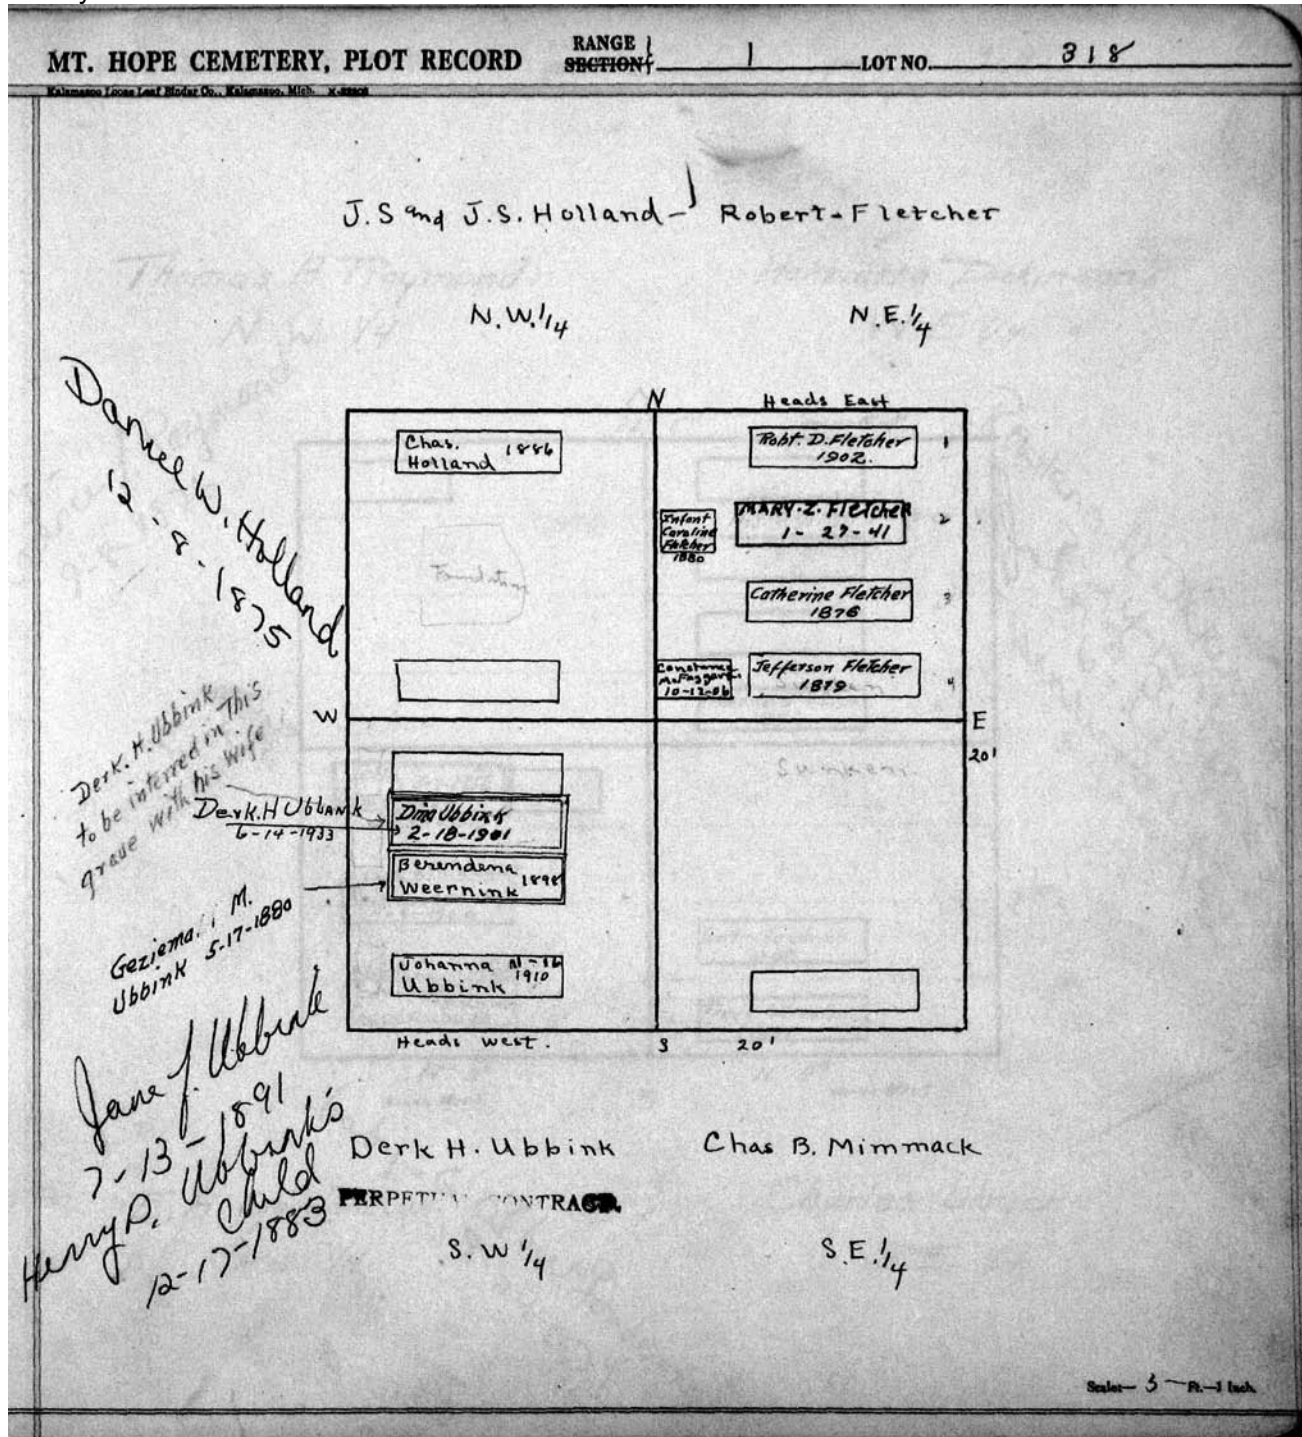 MT. HOPE CEMETERY, PLOT RECORD
RANGE
SECTION
1
LOT NO. 318
Kalamazoo Loose Leaf Binder Co., Kalamazoo, Mich.
J.S and J.S. Holland - Robert - Fletcher
N.W. 1/4
N.E. 1/4
Daniel W. Holland
12-8-1875
N
Heads East
Chas. 1886
Holland
Robt. D. Fletcher
1902.
1
Infant
Caroline
Fletcher
1880
MARY. Z. Fletcher
1-27-41
2
Catherine Fletcher
1876
3
Constance
10-12-06
Jefferson Fletcher
1879
4
W
E
20'
Derk. H. Ubbink
to be interred in This
grave with his wife
Derk. H Ubbank
6-14-1933
Dina Ubbink
2-18-1901
Berendena
Weernink 1898
Geziema. M.
Ubbink 5-17-1880
Johanna
Ubbink 1910
Heads West.
S
20'
Jane J. Ubbink
7-13-1891
Henry D. Ubbink's
Child
12-17-1883
Derk H. Ubbink
Chas B. Mimmack
PERPETUAL CONTRACT.
S. W 1/4
S.E. 1/4
Scale— 5 Ft.—1 Inch.